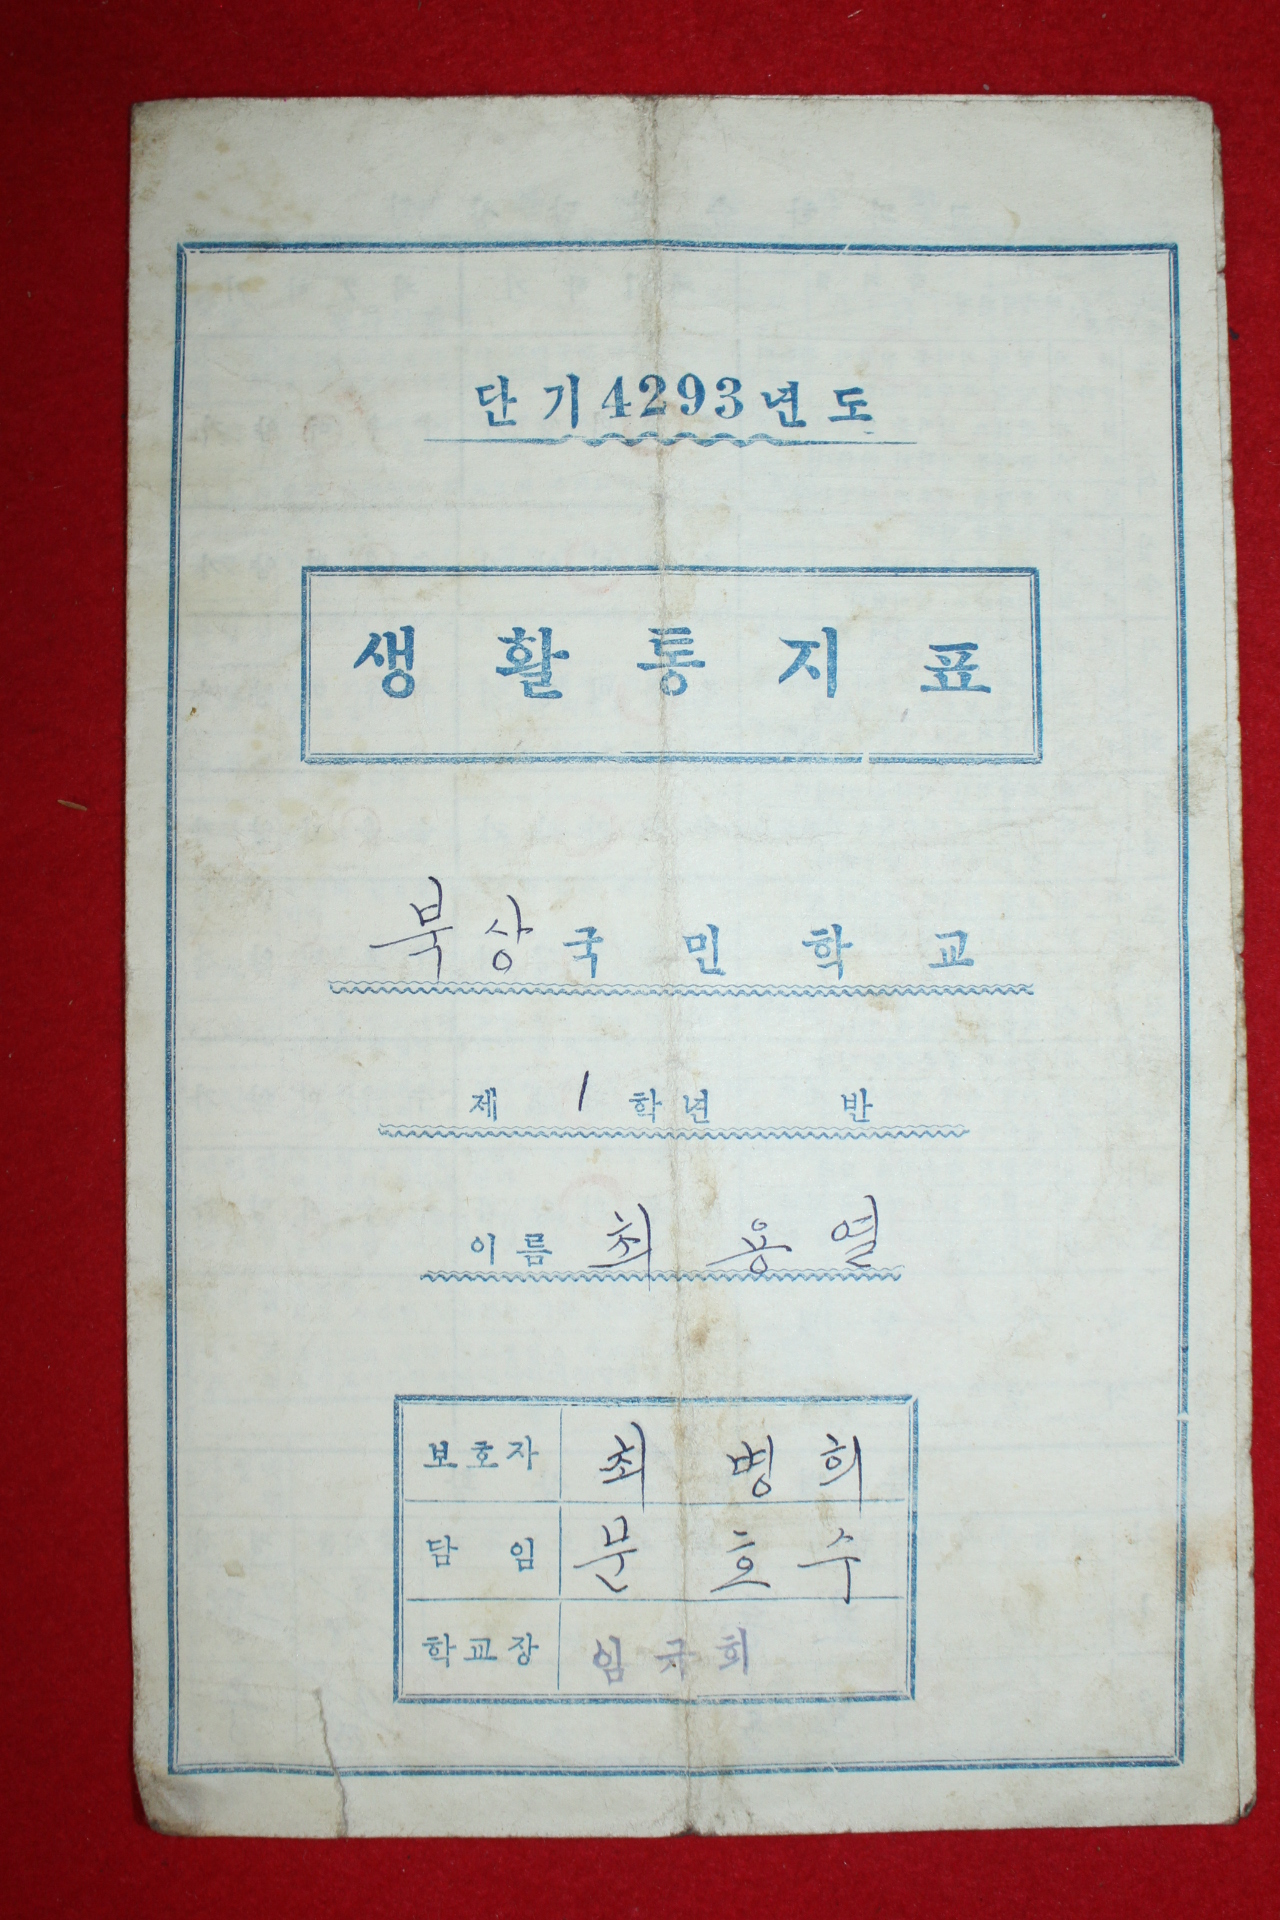 단기 4293년도
생활통지표
북상국민학교
제 1 학년 반
이름 최용열
보호자 최병희
담임 문호수
학교장 임규희